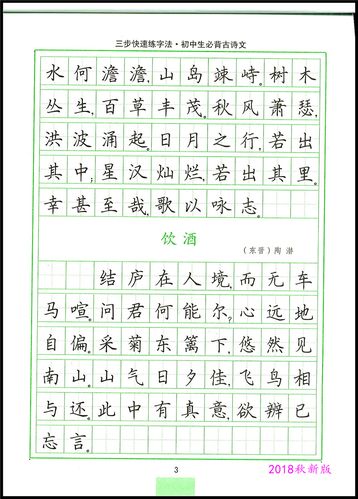 三步快速练字法·初中生必背古诗文
水何澹澹,山岛竦峙。树木
丛生,百草丰茂。秋风萧瑟,
洪波涌起。日月之行,若出
其中;星汉灿烂,若出其里。
幸甚至哉,歌以咏志。
饮酒
(东晋)陶潜
结庐在人境,而无车
马喧。问君何能尔?心远地
自偏。采菊东篱下,悠然见
南山。山气日夕佳,飞鸟相
与还。此中有真意,欲辨已
忘言。
3
2018秋新版